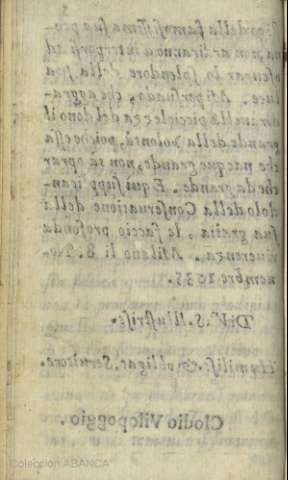 della famosissima sua pro-
non ardiranno d'interporsi ad
oscurar lo splendore della sua
luce. Mi persuado, che aggra-
dirà nella picciolezza del dono il
grande della volontà, poiche essa
che nacque grande, non sa oprar
che da grande. E qui supplican-
dola della Conseruatione della
sua gratia, le faccio profonda
riuerenza. Milano li 8. No-
uembre 1635.
Di V. S. Illustriss.
Humiliss. & obligat. Seruitore.
Clodio Vilopoggio.
Colección ABANCA